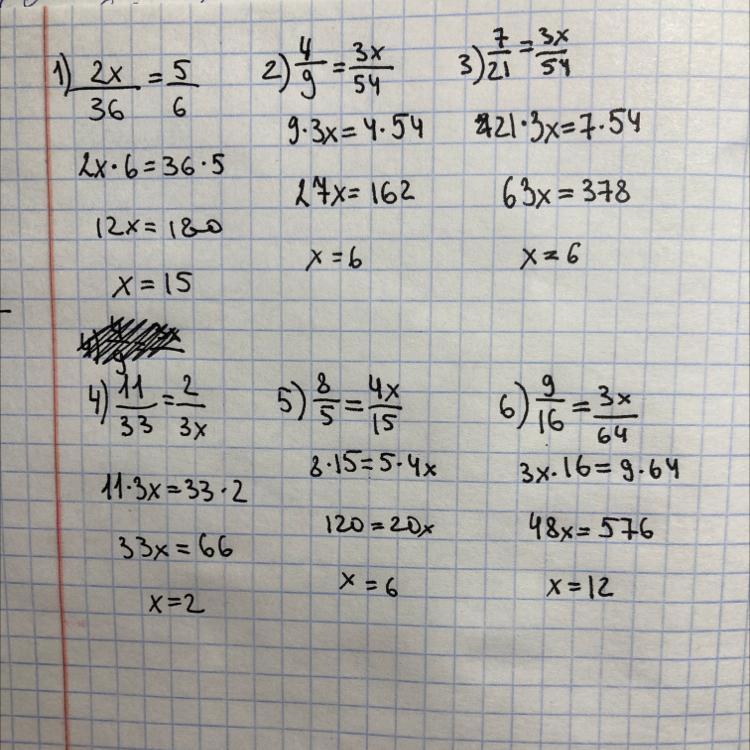 1) 2x/36 = 5/6
2x·6=36·5
12x=180
x=15
2) 4/9 = 3x/54
9·3x=4·54
27x=162
x=6
3) 7/21 = 3x/54
21·3x=7·54
63x=378
x=6
4) 11/33 = 2/3x
11·3x=33·2
33x=66
x=2
5) 8/5 = 4x/15
8·15=5·4x
120=20x
x=6
6) 9/16 = 3x/64
3x·16=9·64
48x=576
x=12